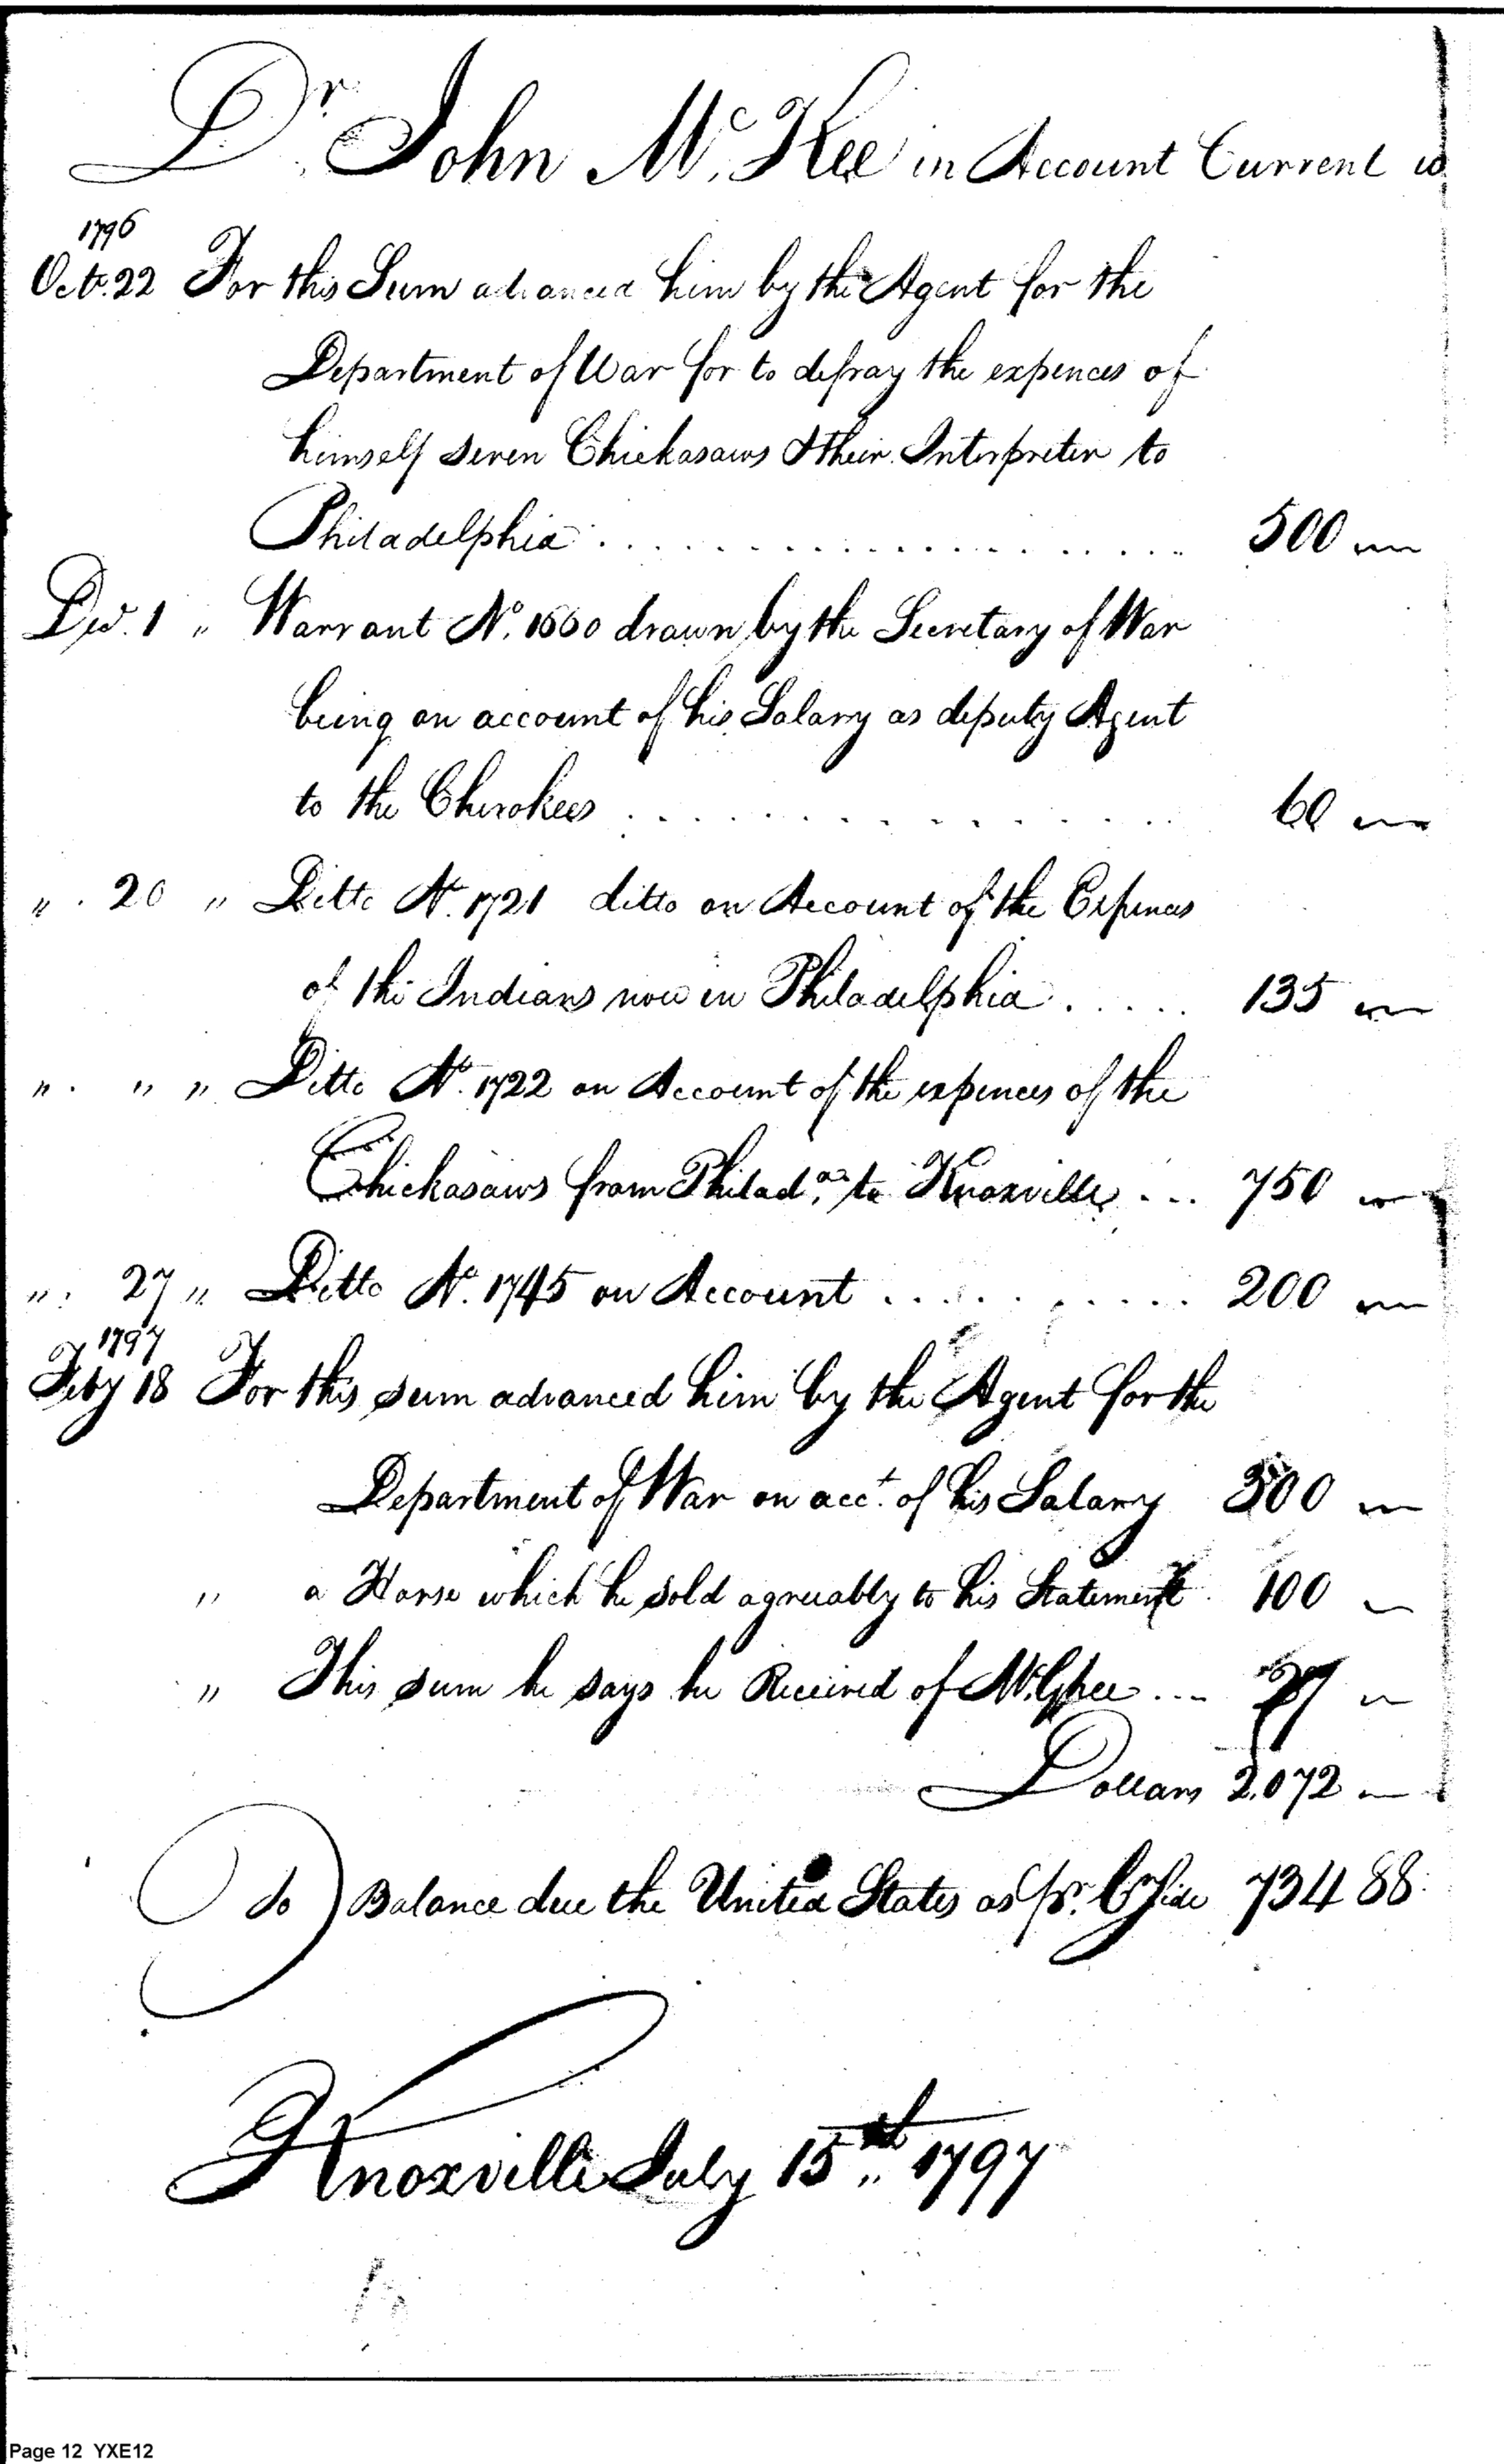 Dr. John McKee in Account Current w
1796
Octr. 22 For this Sum advanced him by the Agent for the
Department of War for to defray the expences of
himself seven Chickasaws & their Interpreter to
Philadelphia .................... 500 —
Decr. 1 " Warrant No. 1660 drawn by the Secretary of War
being on account of his Salary as deputy Agent
to the Cherokees ................ 60 —
" . 20 " Ditto No. 1721 ditto on Account of the Expences
of the Indians now in Philadelphia ..... 135 —
" . " " Ditto No. 1722 on Account of the expences of the
Chickasaws from Philada. to Knoxville ... 750 —
" . 27 " Ditto No. 1745 on Account ........... 200 —
1797
Feby 18 For this sum advanced him by the Agent for the
Department of War on acct. of his Salary 300 —
" a Horse which he sold agreeably to his Statement . 100 —
" This sum he says he Received of McGhee .... 27 —
Dollars 2.072 —
To Balance due the United States as pr. Cr Side 734 88
Knoxville July 15th 1797
Page 12 YXE12